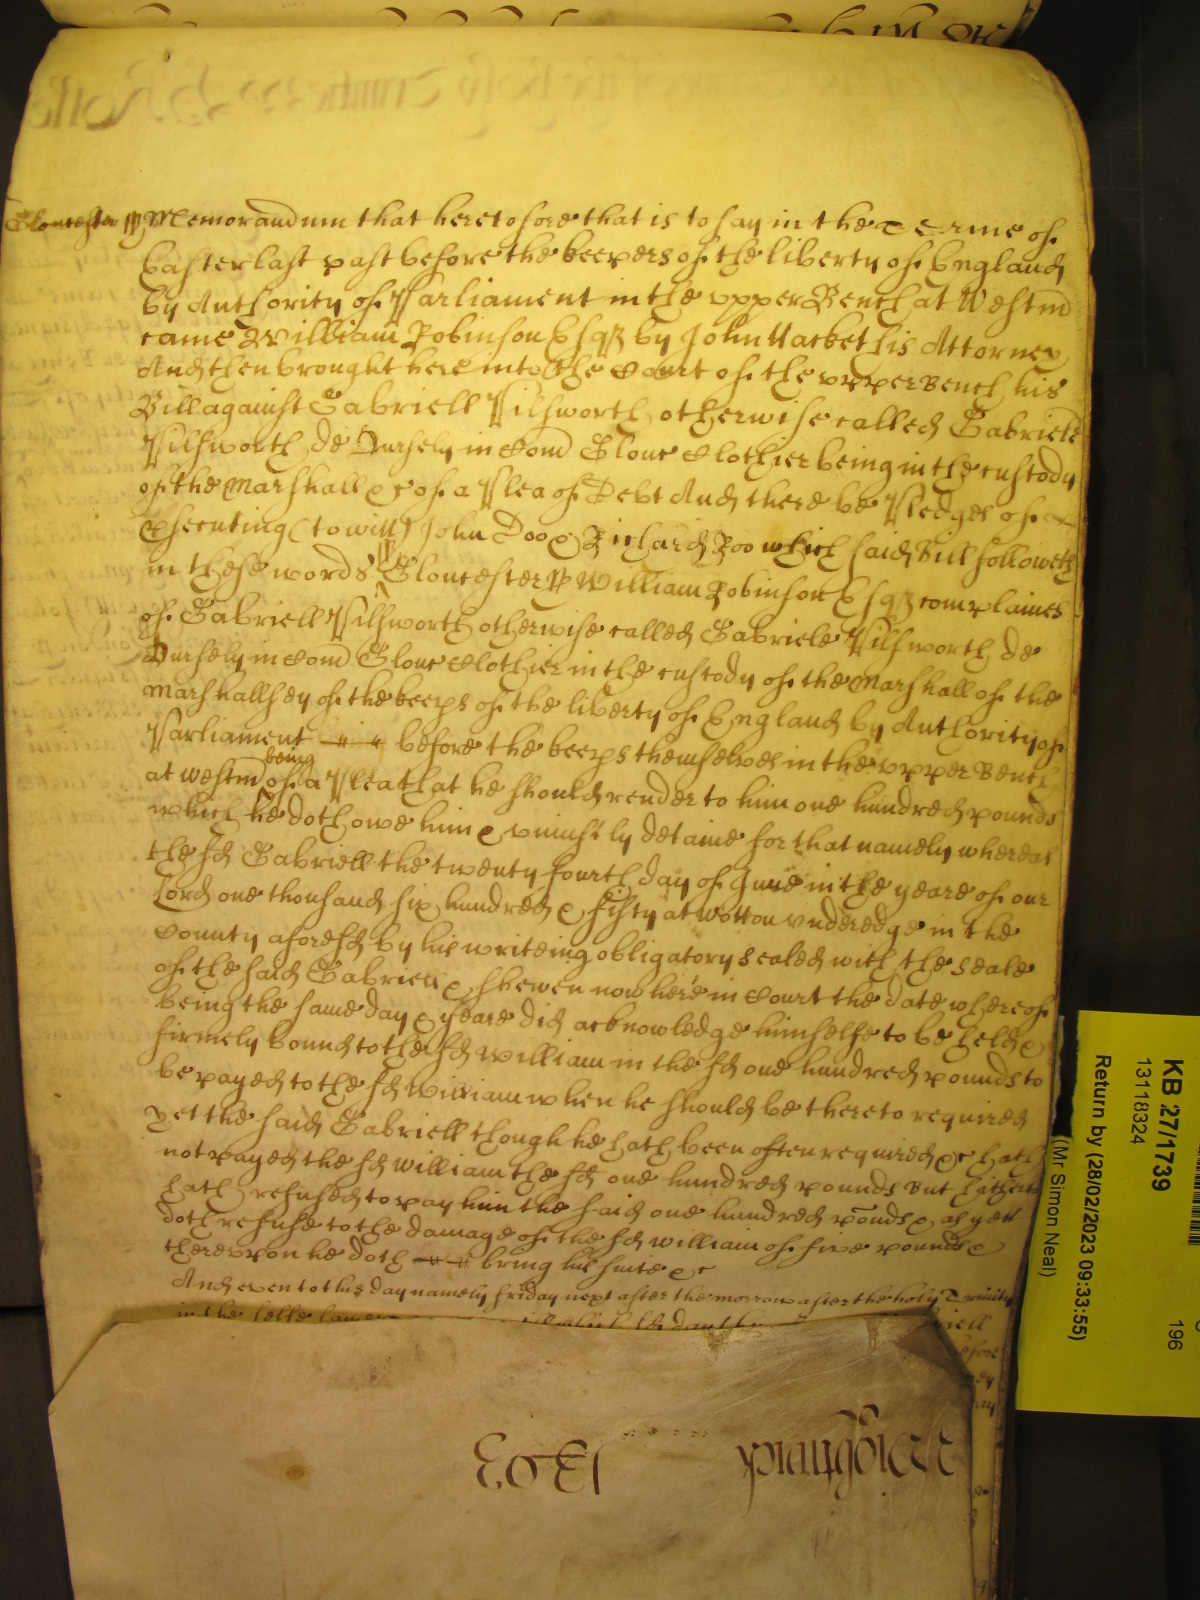 Gloucester ss Memorandum that heretofore that is to say in the Terme of
Easter last past before the keepers of the liberty of England
by Authority of Parliament in the vpper Bench at Westm
came William Robinson Esqr by John Hacket his Attorney
And then brought here into the Court of the vpper Bench his
Bill against Gabriell Pilsworth otherwise called Gabriele
Pilsworth de Dursely in Com Glouc Clothier being in the custody
of the Marshall &c of a Plea of Debt And there be Pledges of
psecuting (to witt) John Doo & Richard Roo which said Bill followeth
in these words ss Gloucester ss William Robinson Esqr complaines
of Gabriell Pilsworth otherwise called Gabriele Pilsworth de
Dursely in Com Glouc Clothier in the custody of the Marshall of the
Marshallsey of the keeps of the liberty of England by Authority of
Parliament before the keeps themselves in the vpper Bench
at Westm being of a Plea that he should render to him one hundred pounds
which he doth owe him & vniustly detaine for that namely whereas
the sd Gabriell the twenty fourth day of June in the yeare of our
Lord one thousand six hundred & fifty at Wotton Vnderedge in the
County aforesd by his writeing obligatory sealed with the seale
of the said Gabriell & shewen now here in Court the date whereof
being the same day & yeare did acknowledge himselfe to be held &
firmely bound to the sd William in the sd one hundred pounds to
be payed to the sd William when he should be thereto required
yet the said Gabriell though he hath been often required &c hath
not payed the sd William the sd one hundred pounds But hitherto
hath refused to pay him the said one hundred pounds & as yett
doth refuse to the damage of the sd William of five pounds &
therevpon he doth bring his suite &c
And even to this day namely friday next after the morrow after the holy Trinity
in the selfe same
KB 27/1739
13118324
196
Return by (28/02/2023 09:33:55)
(Mr Simon Neal)
Wightwick 1303